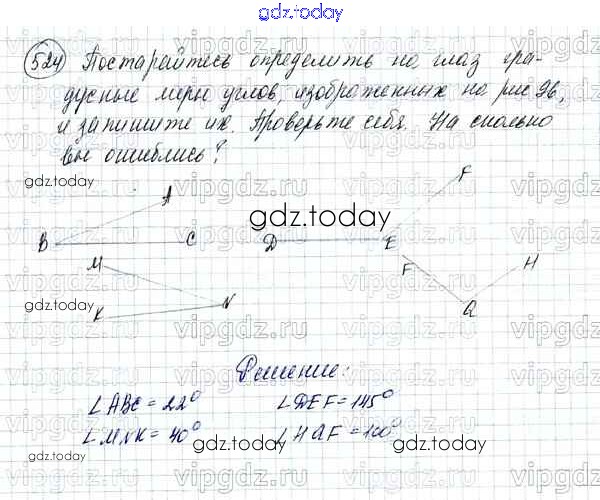 gdz.today
524 Постарайтесь определить на глаз гра-
дусные меры углов, изображенных на рис 96,
и запишите их. Проверьте себя. На сколько
вы ошиблись?
gdz.today
gdz.today
A
F
gdz.today
B C D E
M F H
gdz.today
K N Q
Решение:
∠ABC = 22° ∠DEF = 145°
∠MNK = 40° ∠HQF = 100°
gdz.today gdz.today gdz.today
vipgdz.ru